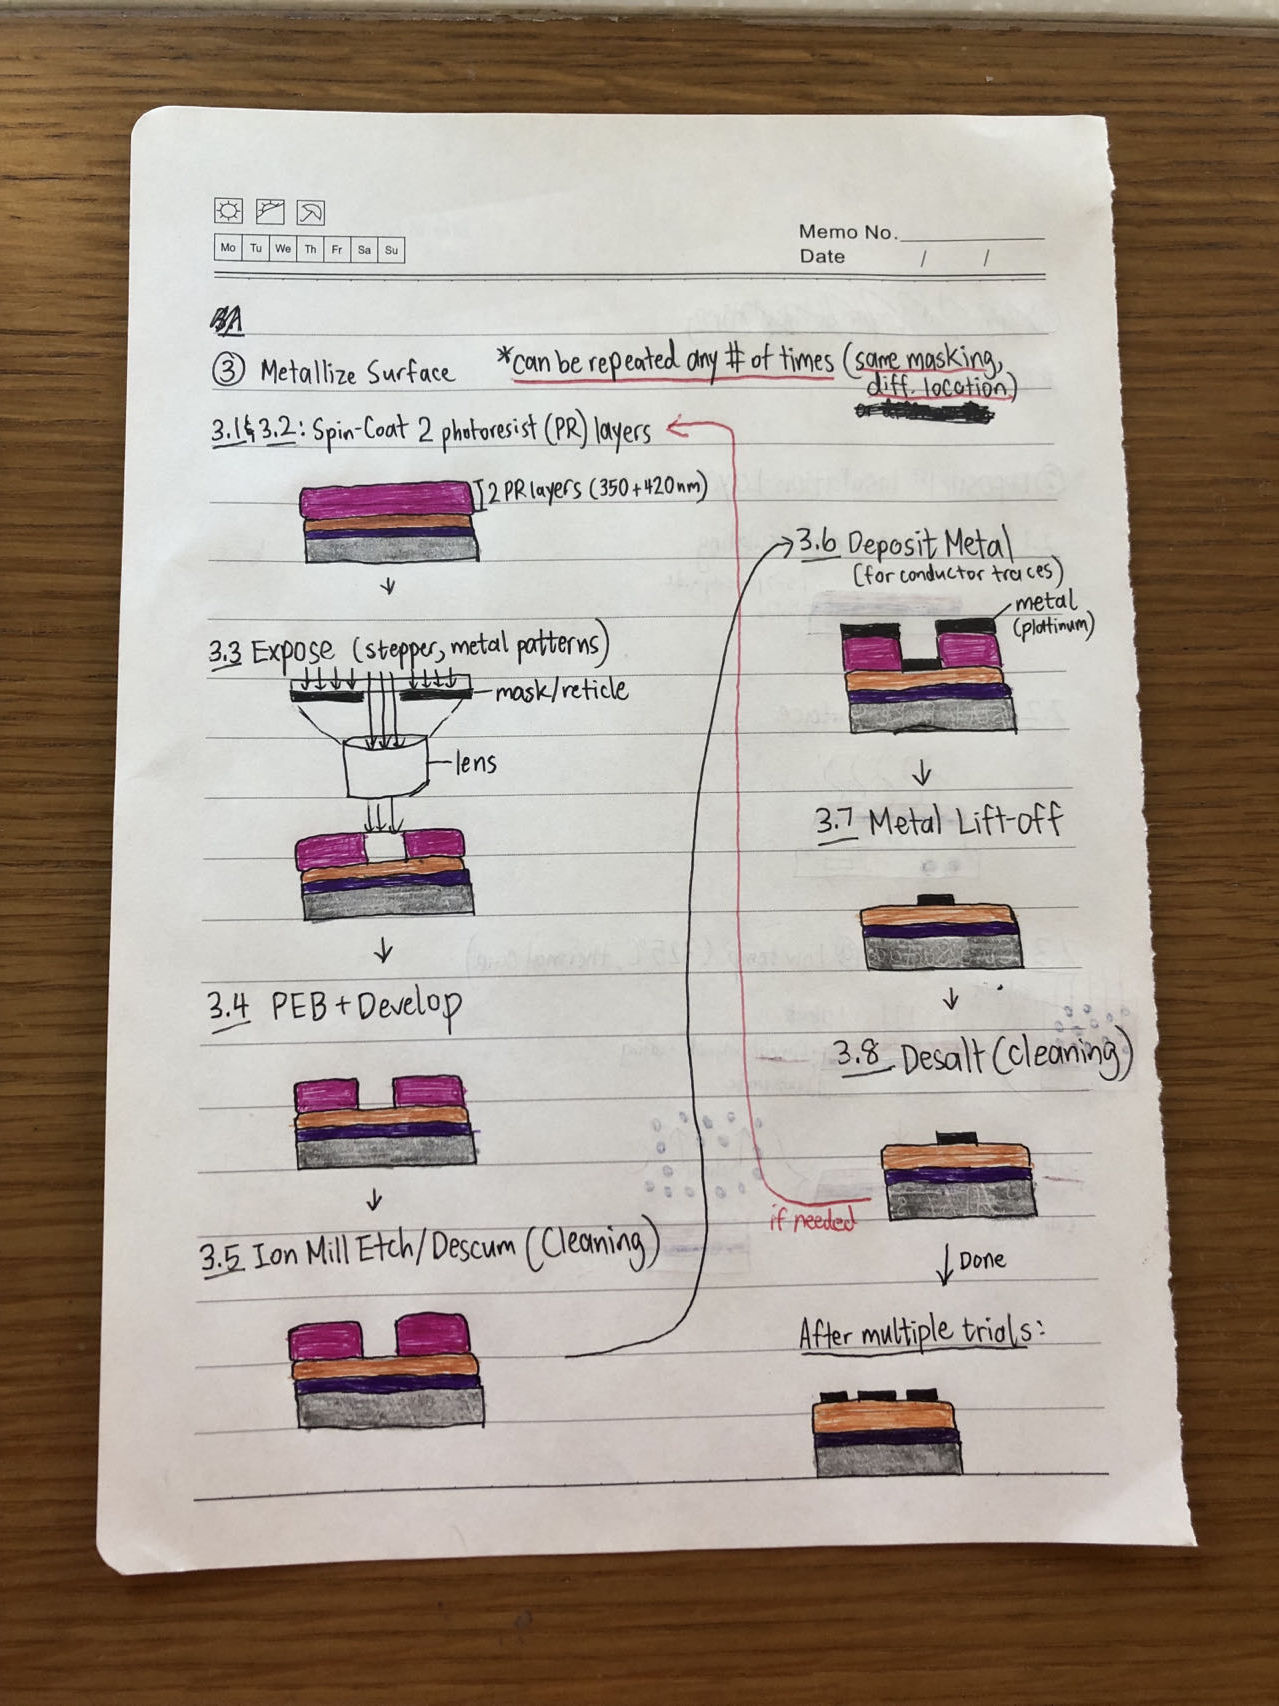 Mo Tu We Th Fr Sa Su
Memo No.
Date / /
③ Metallize Surface *can be repeated any # of times (same masking,
diff. location)
3.1 & 3.2: Spin-Coat 2 photoresist (PR) layers
2 PR layers (350+420nm)
3.3 Expose (stepper, metal patterns)
mask/reticle
lens
3.4 PEB + Develop
3.5 Ion Mill Etch/Descum (Cleaning)
3.6 Deposit Metal
(for conductor traces)
metal
(platinum)
3.7 Metal Lift-off
3.8 Desalt (cleaning)
if needed
Done
After multiple trials: